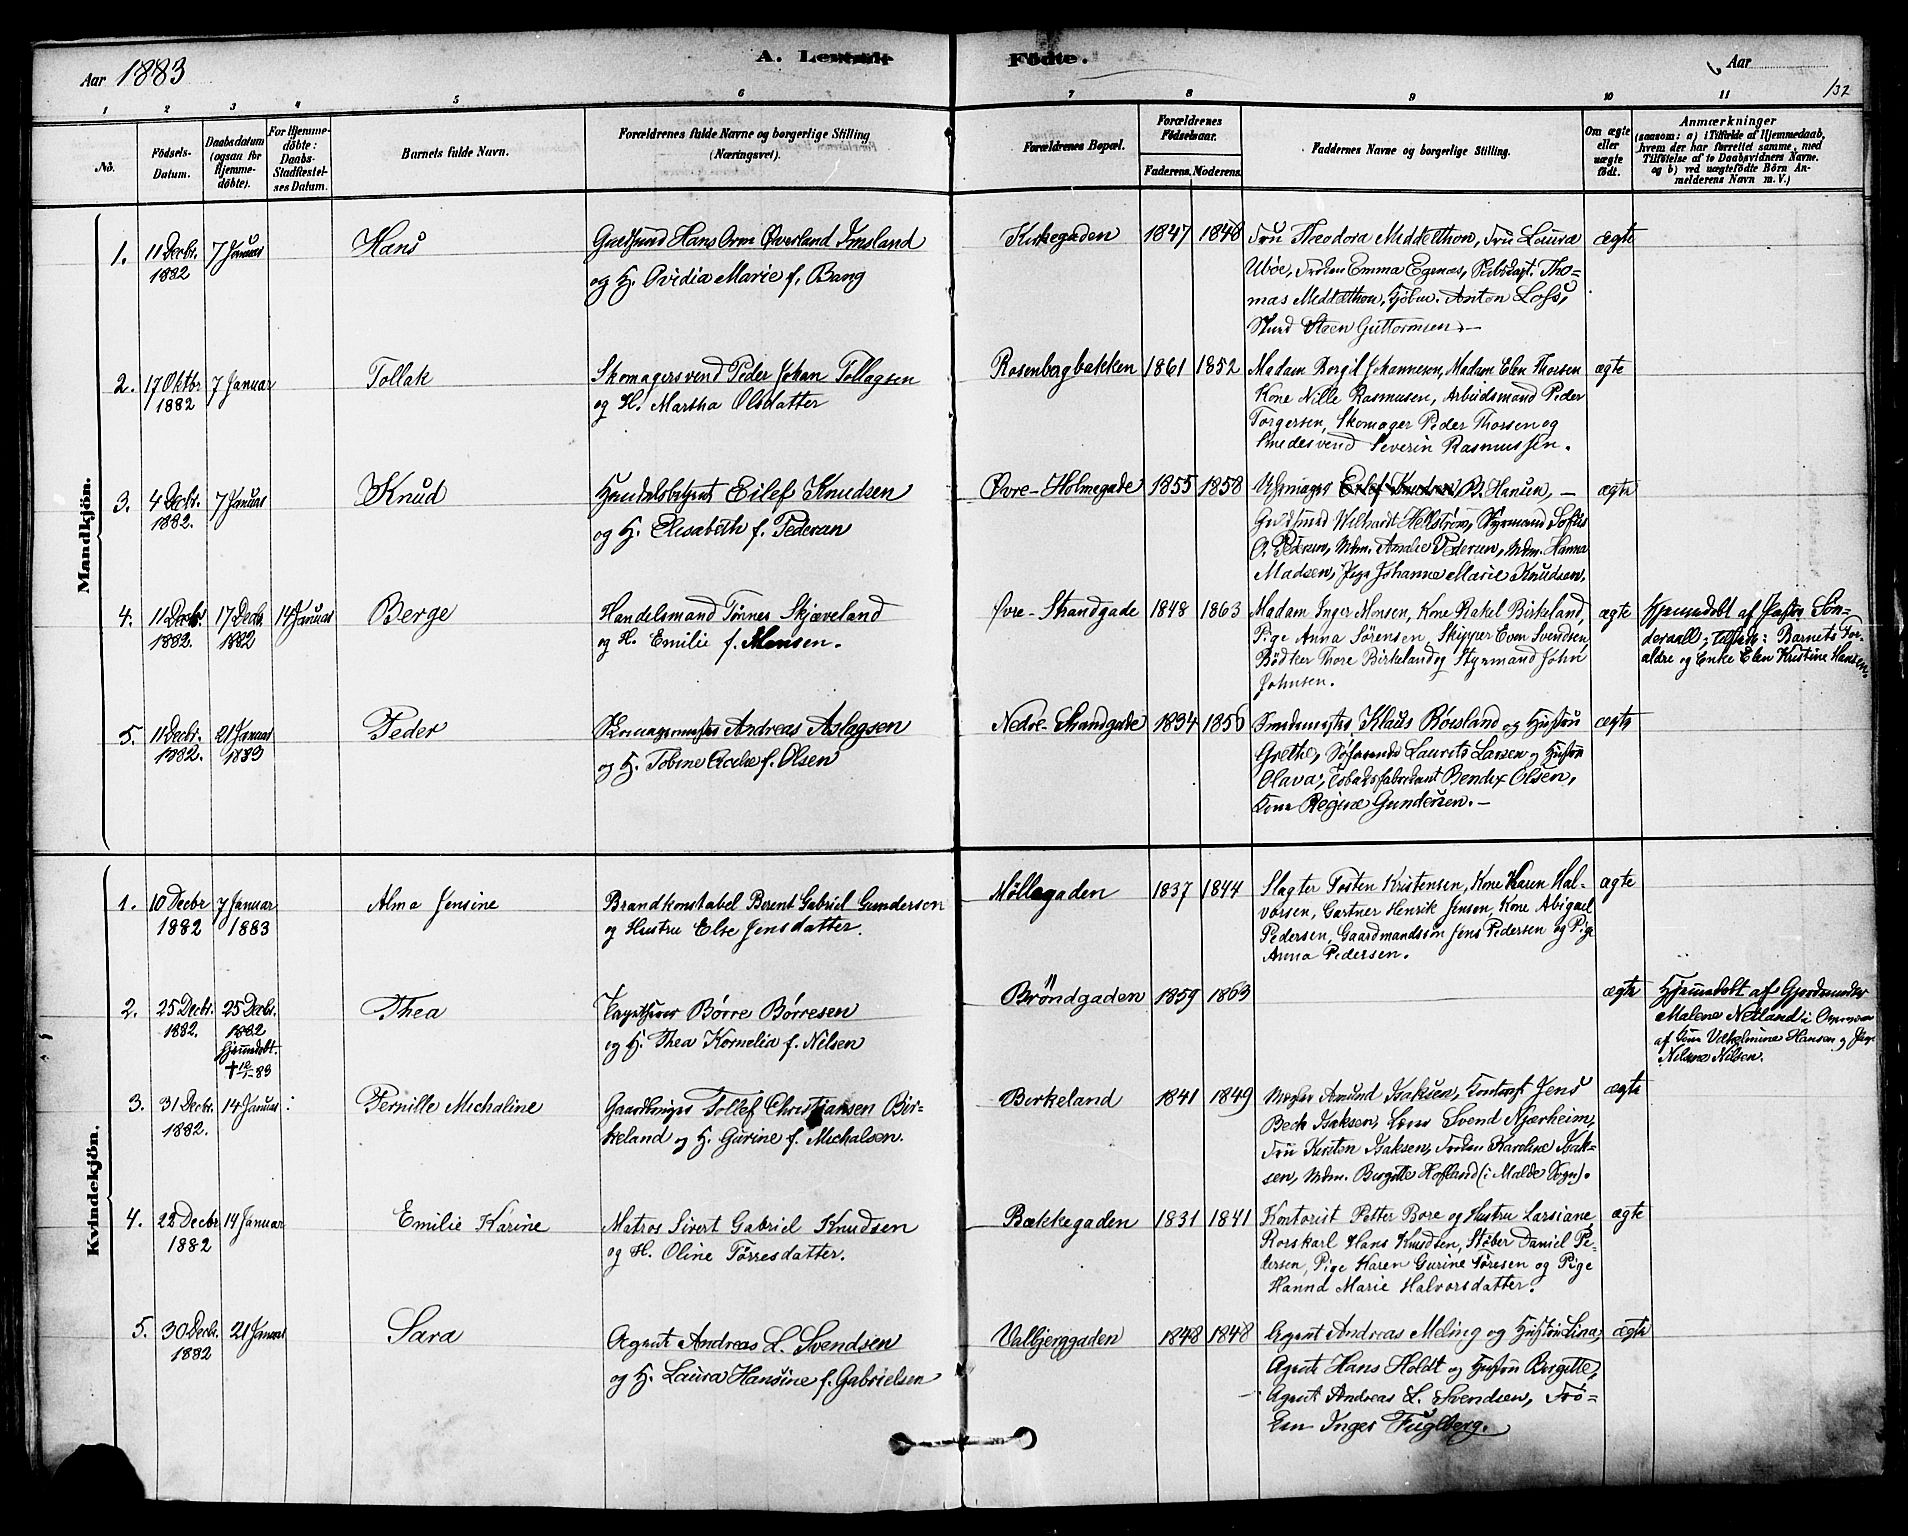 Aar 1883
A. Levende
Fødte.
Aar
132
1 2 3 4 5 6 7 8 9 10 11
No.
Födsels-
Datum.
Daabsdatum
(ogsaa for
Hjemme-
döbte).
For Hjemme-
döbte:
Daabs-
Stadfæstel-
ses Datum.
Barnets fulde Navn.
Forældrenes fulde Navne og borgerlige Stilling
(Næringsvei).
Forældrenes Bopæl.
Forældrenes
Födselsaar.
Faderens. Moderens.
Faddernes Navne og borgerlige Stilling.
Om ægte
eller
uægte
födt.
Anmærkninger
(saasom: a) i Tilfælde af Hjemmedaab,
hvem der har forrettet samme, med
Tilföielse af to Daabsvidners Navne.
og b) ved uægtefödte Börn An-
melderens Navn m. V.)
Mandkjön.
1. 11 Decbr.
1882
7 Januar
Hans
Guldsmed Hans Orm Øverland Imsland
og H. Ovidia Marie f. Bang
Kirkegaden 1847 1848
Fru Theodora Middelthon, Fru Laura
Ubøe, Frøken Emma Egenæs, Tho-
mas Middelthon, Anton
Steen Guttormsen. —
ægte
2. 17 Oktbr
1882
7 Januar
Tollak
Skomagersvend Peder Johan Tollagsen
og H. Martha Olsdatter
Rosenbergbakken 1861 1852
Madam Borgil Johannesen, Madam Elen Thorsen
Kone Nille Rasmusen, Arbeidsmand Peder
Torgersen, Skomager Peder Thorsen og
Smedesvend Severin Rasmussen.
ægte
3. 4 Decbr.
1882.
7 Januar
Knud
Handelsbetjent Eilef Knudsen
og H. Elisabeth f. Pedersen
Øvre-Holmegade 1855 1858
Eilef Knudsen, B. Hansen, —
Guldsmed Wilhardt Helstrøm, Styrmand Sofus
O. Pedersen, Mdm. Amalie Pedersen, Mdm. Hanna
Madsen, Pige Johanne Marie Knudsen.
ægte
4. 11 Decbr
1882.
17 Decb.
1882
14 Januar
Berge
Handelsmand Tönnes Skjæveland
og H. Emilie f. Monsen.
Øvre-Strandgade 1848 1863
Madam Inger Monsen, Kone Rakel Birkeland,
Pige Anna Sörensen, Skipper Even Svendsen
Bödker Thore Birkeland og Styrmand John
Johnsen.
ægte
Hjemmedöbt af Pastor Søn-
deraall; Barnets For-
ældre og Enke Elen Kristine Hansen.
5. 11 Decbr.
1882.
21 Januar
1883
Peder
Skomagermester Andreas Aslagsen
og H. Tobine f. Olsen
Nedre-Strandgade 1834 1856
Smedemester Klaus Røisland og Hustru
Grethe, Søfarende Laurits Larsen og Hustru
Olava, Tobaksfabrikant Bendix Olsen,
Kone Regine Gundersen. —
ægte
Kvindekjön.
1. 10 Decbr
1882
7 Januar
1883
Alma Jensine
Brandkonstabel Berent Gabriel Gundersen
og Hustru Else Jensdatter.
Møllegaden 1837 1844
Slagter Tosten Kristensen, Kone Karen Hal-
vorsen, Gartner Henrik Jensen, Kone Abigael
Pedersen, Gaardmandssön Jens Pedersen og Pige
Anna Pedersen.
ægte
2. 25 Decbr.
1882.
25 Decbr.
1882
hjemmedøbt.
Thea
Børre Børresen
og H. Thea Kornelia f. Nilsen
Brøndgaden 1859 1863
ægte
Hjemmedøbt af Gjordemoder
Malene Netland i Overvær
af Kone Vilhelmine Hansen og Pige
Nilsen.
3. 31 Decbr.
1882.
14 Januar
Pernille Michaline
Gaardbruger Tollef Christiansen Bir-
keland og H. Gurine f. Michalsen.
Birkeland 1841 1849
Amund Isaksen, Jens
Bech Isaksen, Svend Njærheim,
Fru Kirsten Isaksen, Frøken Karoline Isak-
sen, Mdm. Birgitte Hofland (i Malde Sogn).
ægte
4. 22 Decbr
1882
14 Januar
Emilie Karine
Matros Sivert Gabriel Knudsen
og H. Oline Tørresdatter.
Bækkegaden 1831 1841
Kontorist Petter Bore og Hustru Larsiane,
Rorskarl Hans Knudsen, Støber Daniel Pe-
dersen, Pige Karen Gurine Tøresen og Pige
Hanna Marie Halvorsdatter.
ægte
5. 30 Decbr.
1882
21 Januar
Sara
Agent Andreas L. Svendsen
og H. Laura Hansine f. Gabrielsen
Valbjerggaden 1848 1848
Agent Andreas Meling og Hustru Lina,
Agent Hans Holdt og Hustru Birgitte,
Agent Andreas L. Svendsen, Frö-
ken Inger Fuglberg.
ægte